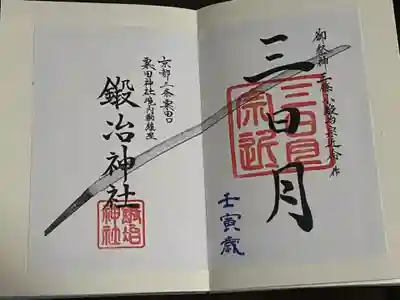 御祭神三條小鍛冶宗近命作
三日月
三日月
宗近
壬寅歳
京都三条粟田口
粟田神社境内鎮座
鍛冶神社
鍛冶
神社